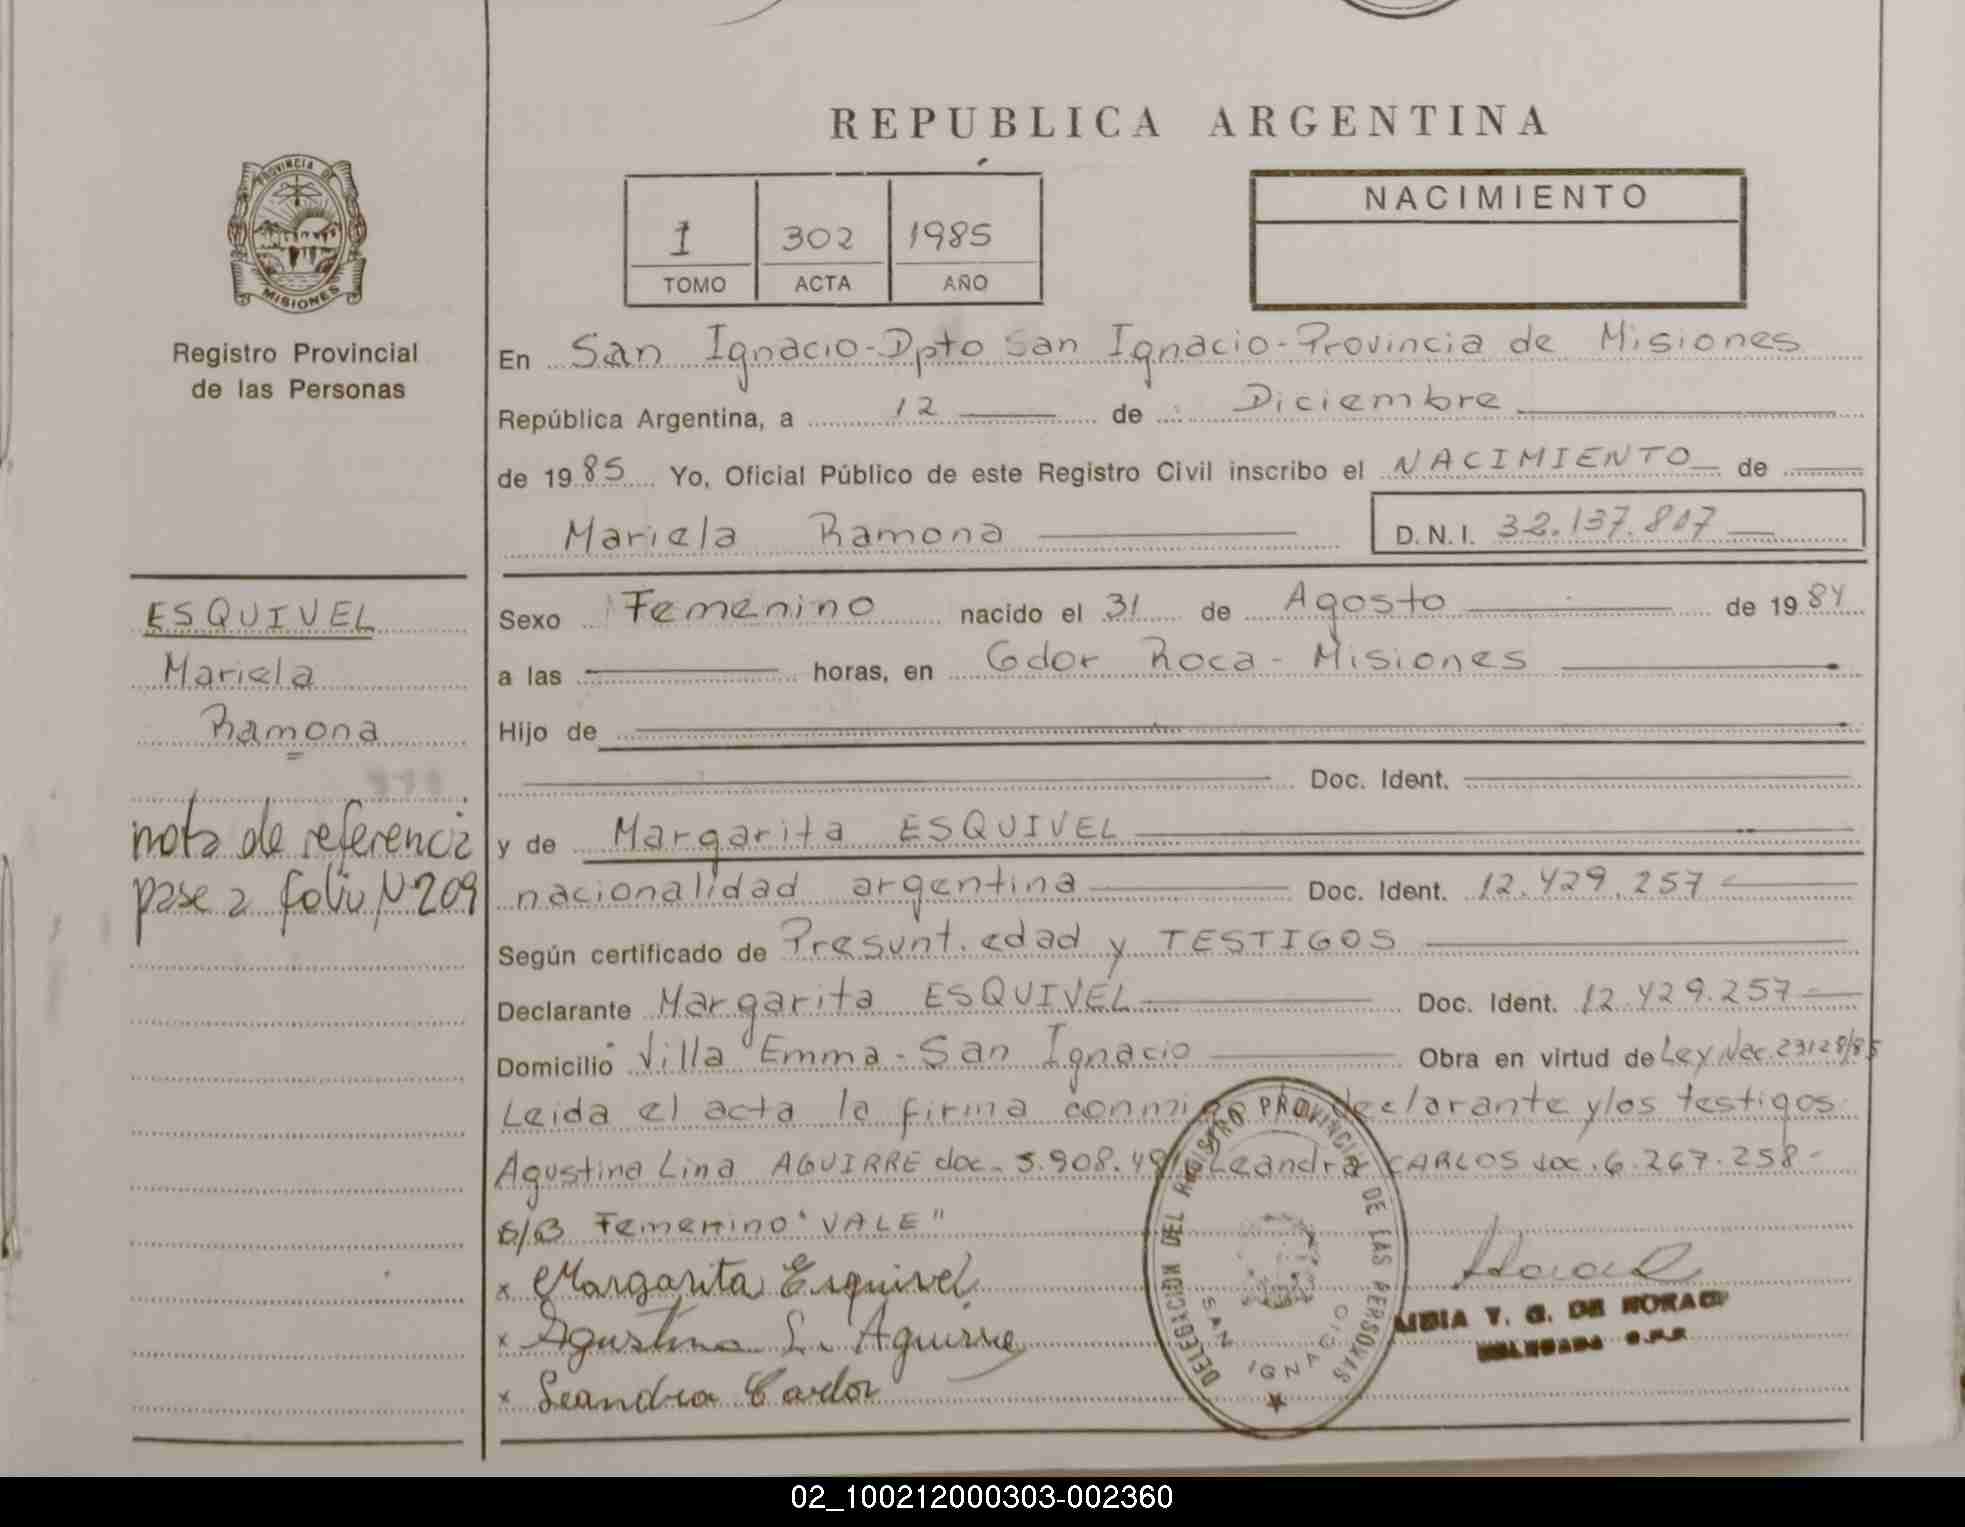 REPUBLICA ARGENTINA
PROVINCIA DE
MISIONES
Registro Provincial
de las Personas
1 302 1985
TOMO ACTA AÑO
NACIMIENTO
En San Ignacio-Dpto San Ignacio-Provincia de Misiones
República Argentina, a 12 de Diciembre
de 1985 Yo, Oficial Público de este Registro Civil inscribo el NACIMIENTO de
Mariela Ramona D.N.I. 32.137.817
ESQUIVEL
Mariela
Ramona
nota de referencia
pase a folio Nº 209
Sexo Femenino nacido el 31 de Agosto de 1984
a las horas, en Gdor Roca - Misiones
Hijo de
Doc. Ident.
y de Margarita ESQUIVEL
nacionalidad argentina Doc. Ident. 12.429.257
Según certificado de Presunt. edad y TESTIGOS
Declarante Margarita ESQUIVEL Doc. Ident. 12.429.257
Domicilio Villa Emma - San Ignacio Obra en virtud de Ley Nac. 23128/85
Leida el acta la firma conmigo declarante y los testigos
Agustina Lina AGUIRRE doc. Leandra CARLOS doc. 6.267.258-
S/B Femenino "VALE"
x Margarita Esquivel
x Agustina L. Aguirre
x Leandra Carlos
DELEGACION DEL REGISTRO PROVINCIAL DE LAS PERSONAS
SAN IGNACIO
V. G. DE
02_100212000303-002360